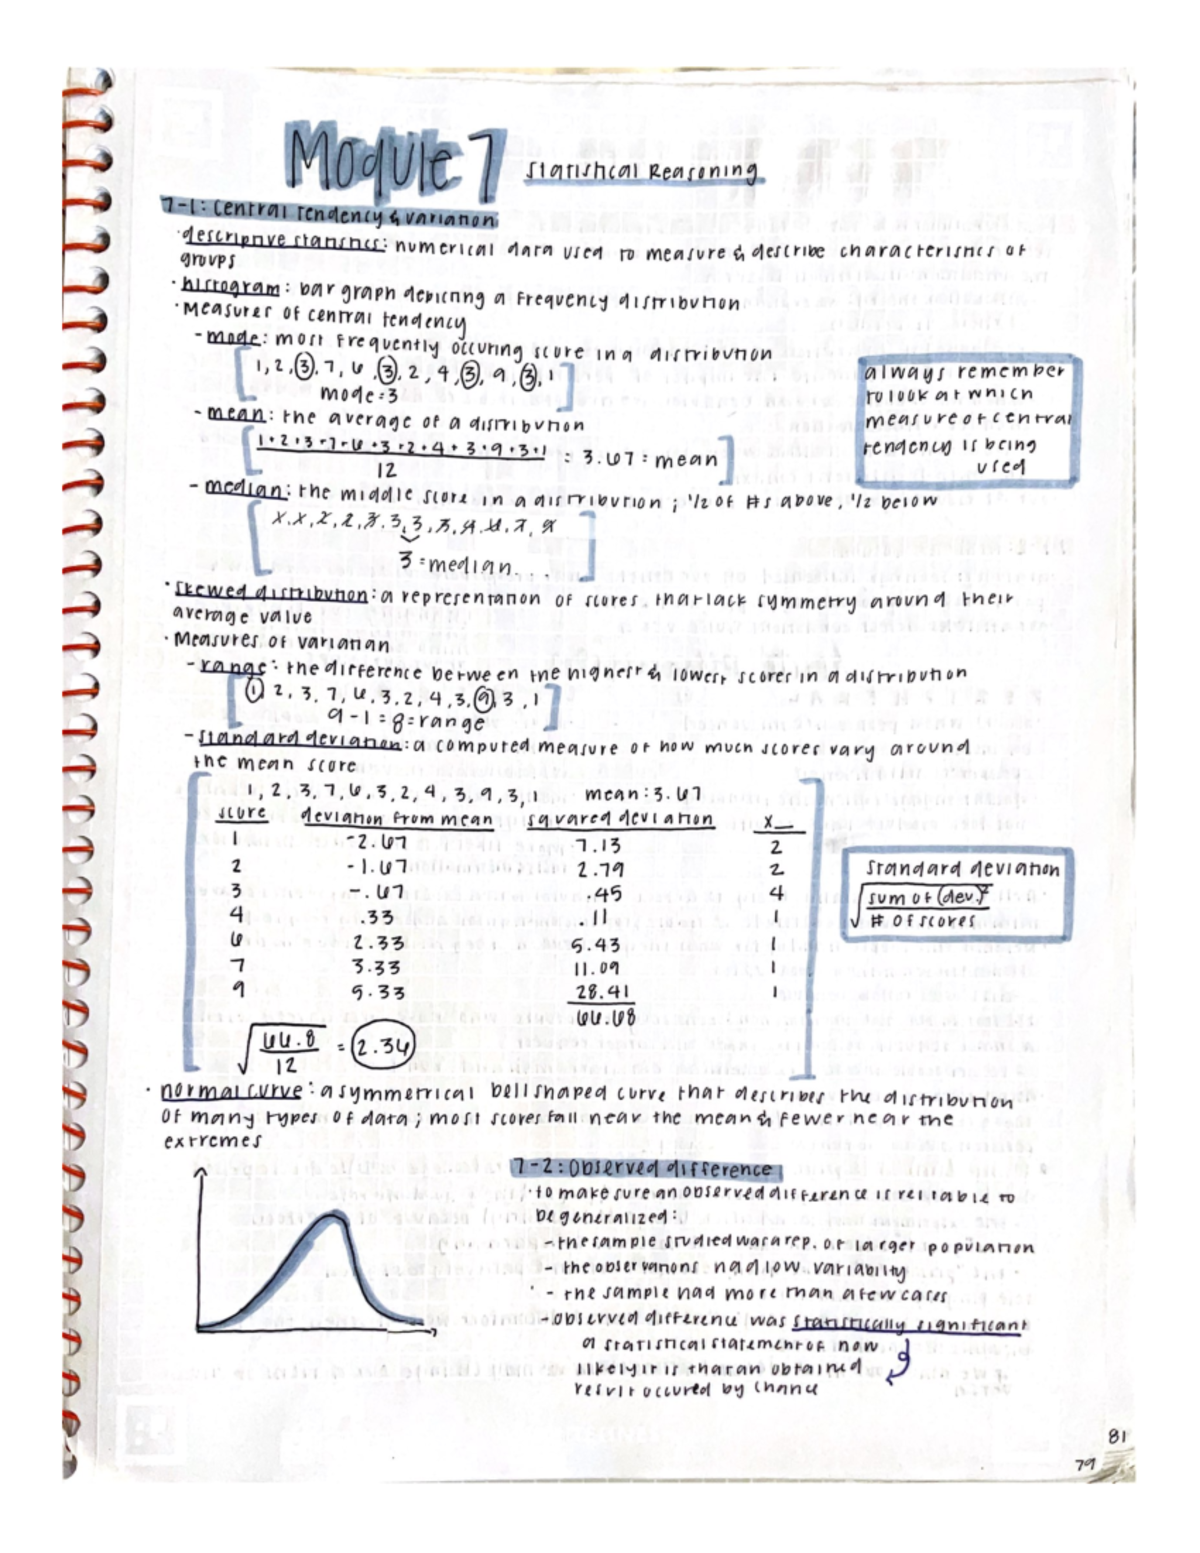 Module 7 Statistical Reasoning
7-1: Central Tendency & variation
·descriptive statistics: numerical data used to measure & describe characteristics of
groups
·histogram: bar graph depicting a frequency distribution
·Measures of central tendency
-mode: most frequently occuring score in a distribution
1, 2, 3, 7, 6, 3, 2, 4, 3, 9, 3, 1
mode=3
-mean: the average of a distribution
1+2+3+7+6+3+2+4+3+9+3+1
12
= 3.67 = mean
always remember
to look at which
measure of central
tendency is being
used
-median: the middle score in a distribution ; 1/2 of #s above, 1/2 below
1, 1, 2, 2, 3, 3, 3, 3, 4, 6, 7, 9
3 =median
·skewed distribution: a representation of scores that lack symmetry around their
average value
·Measures of variation
-range: the difference between the highest & lowest scores in a distribution
1, 2, 3, 7, 6, 3, 2, 4, 3, 9, 3, 1
9-1=8=range
-standard deviation: a computed measure of how much scores vary around
the mean score
1, 2, 3, 7, 6, 3, 2, 4, 3, 9, 3, 1 mean: 3.67
score deviation from mean squared deviation x_
1 -2.67 7.13 2
2 -1.67 2.79 2
3 -.67 .45 4
4 .33 .11 1
6 2.33 5.43 1
7 3.33 11.09 1
9 5.33 28.41 1
66.68
√66.8
12
= 2.36
standard deviation
√sum of (dev.)²
# of scores
·normal curve: a symmetrical bell shaped curve that describes the distribution
of many types of data ; most scores fall near the mean & fewer near the
extremes
7-2: Observed difference
·to make sure an observed difference is reliable to
be generalized:
-the sample studied was a rep. of larger population
-the observations had low variability
-the sample had more than a few cases
-observed difference was statistically significant
a statistical statement of how
likely it is that an obtained
result occured by chance
81
79